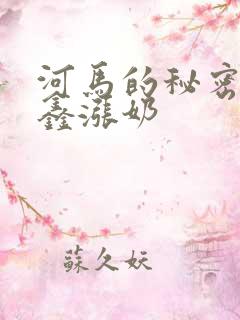 河馬的秘密
鑫漲奶
蘇久妖